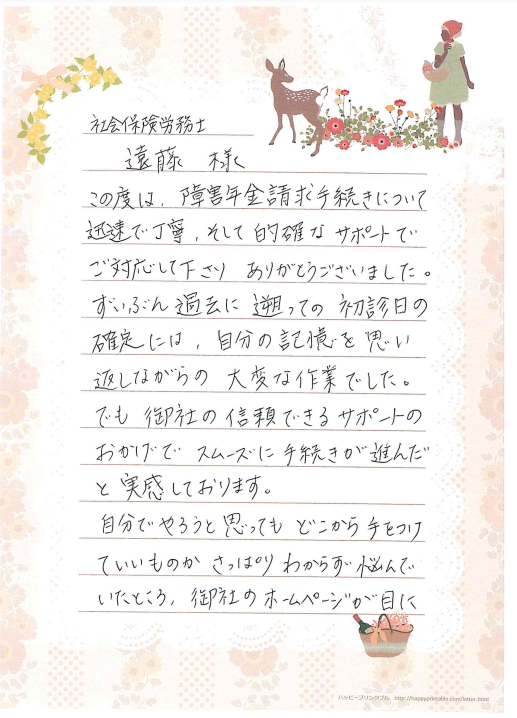 社会保険労務士
遠藤 様
この度は、障害年金請求手続きについて
迅速で丁寧、そして的確なサポートで
ご対応して下さり ありがとうございました。
ずいぶん過去に遡っての初診日の
確定には、自分の記憶を思い
返しながらの大変な作業でした。
でも御社の信頼できるサポートの
おかげでスムーズに手続きが進んだ
と実感しております。
自分でやろうと思ってもどこから手をつけ
ていいものかさっぱりわからず悩んで
いたところ、御社のホームページが目に
ハッピープリンタブル http://happyprintable.com/letter.html